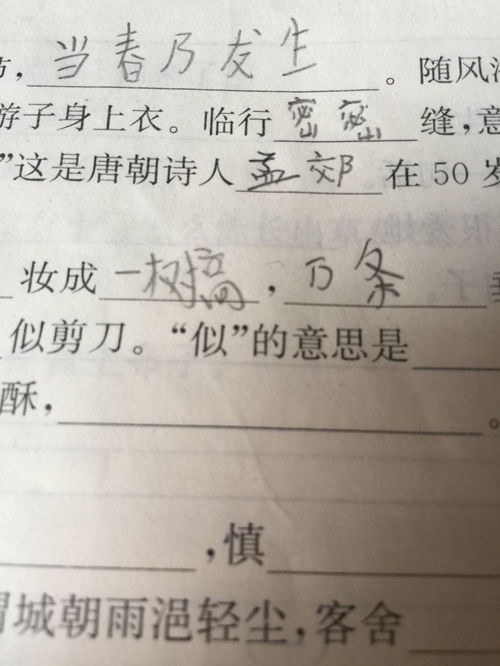 节，当春乃发生。随风
游子身上衣。临行密密缝，意
”这是唐朝诗人孟郊在50岁
妆成一树搞，万条
似剪刀。“似”的意思是
酥，。
，慎
渭城朝雨浥轻尘，客舍